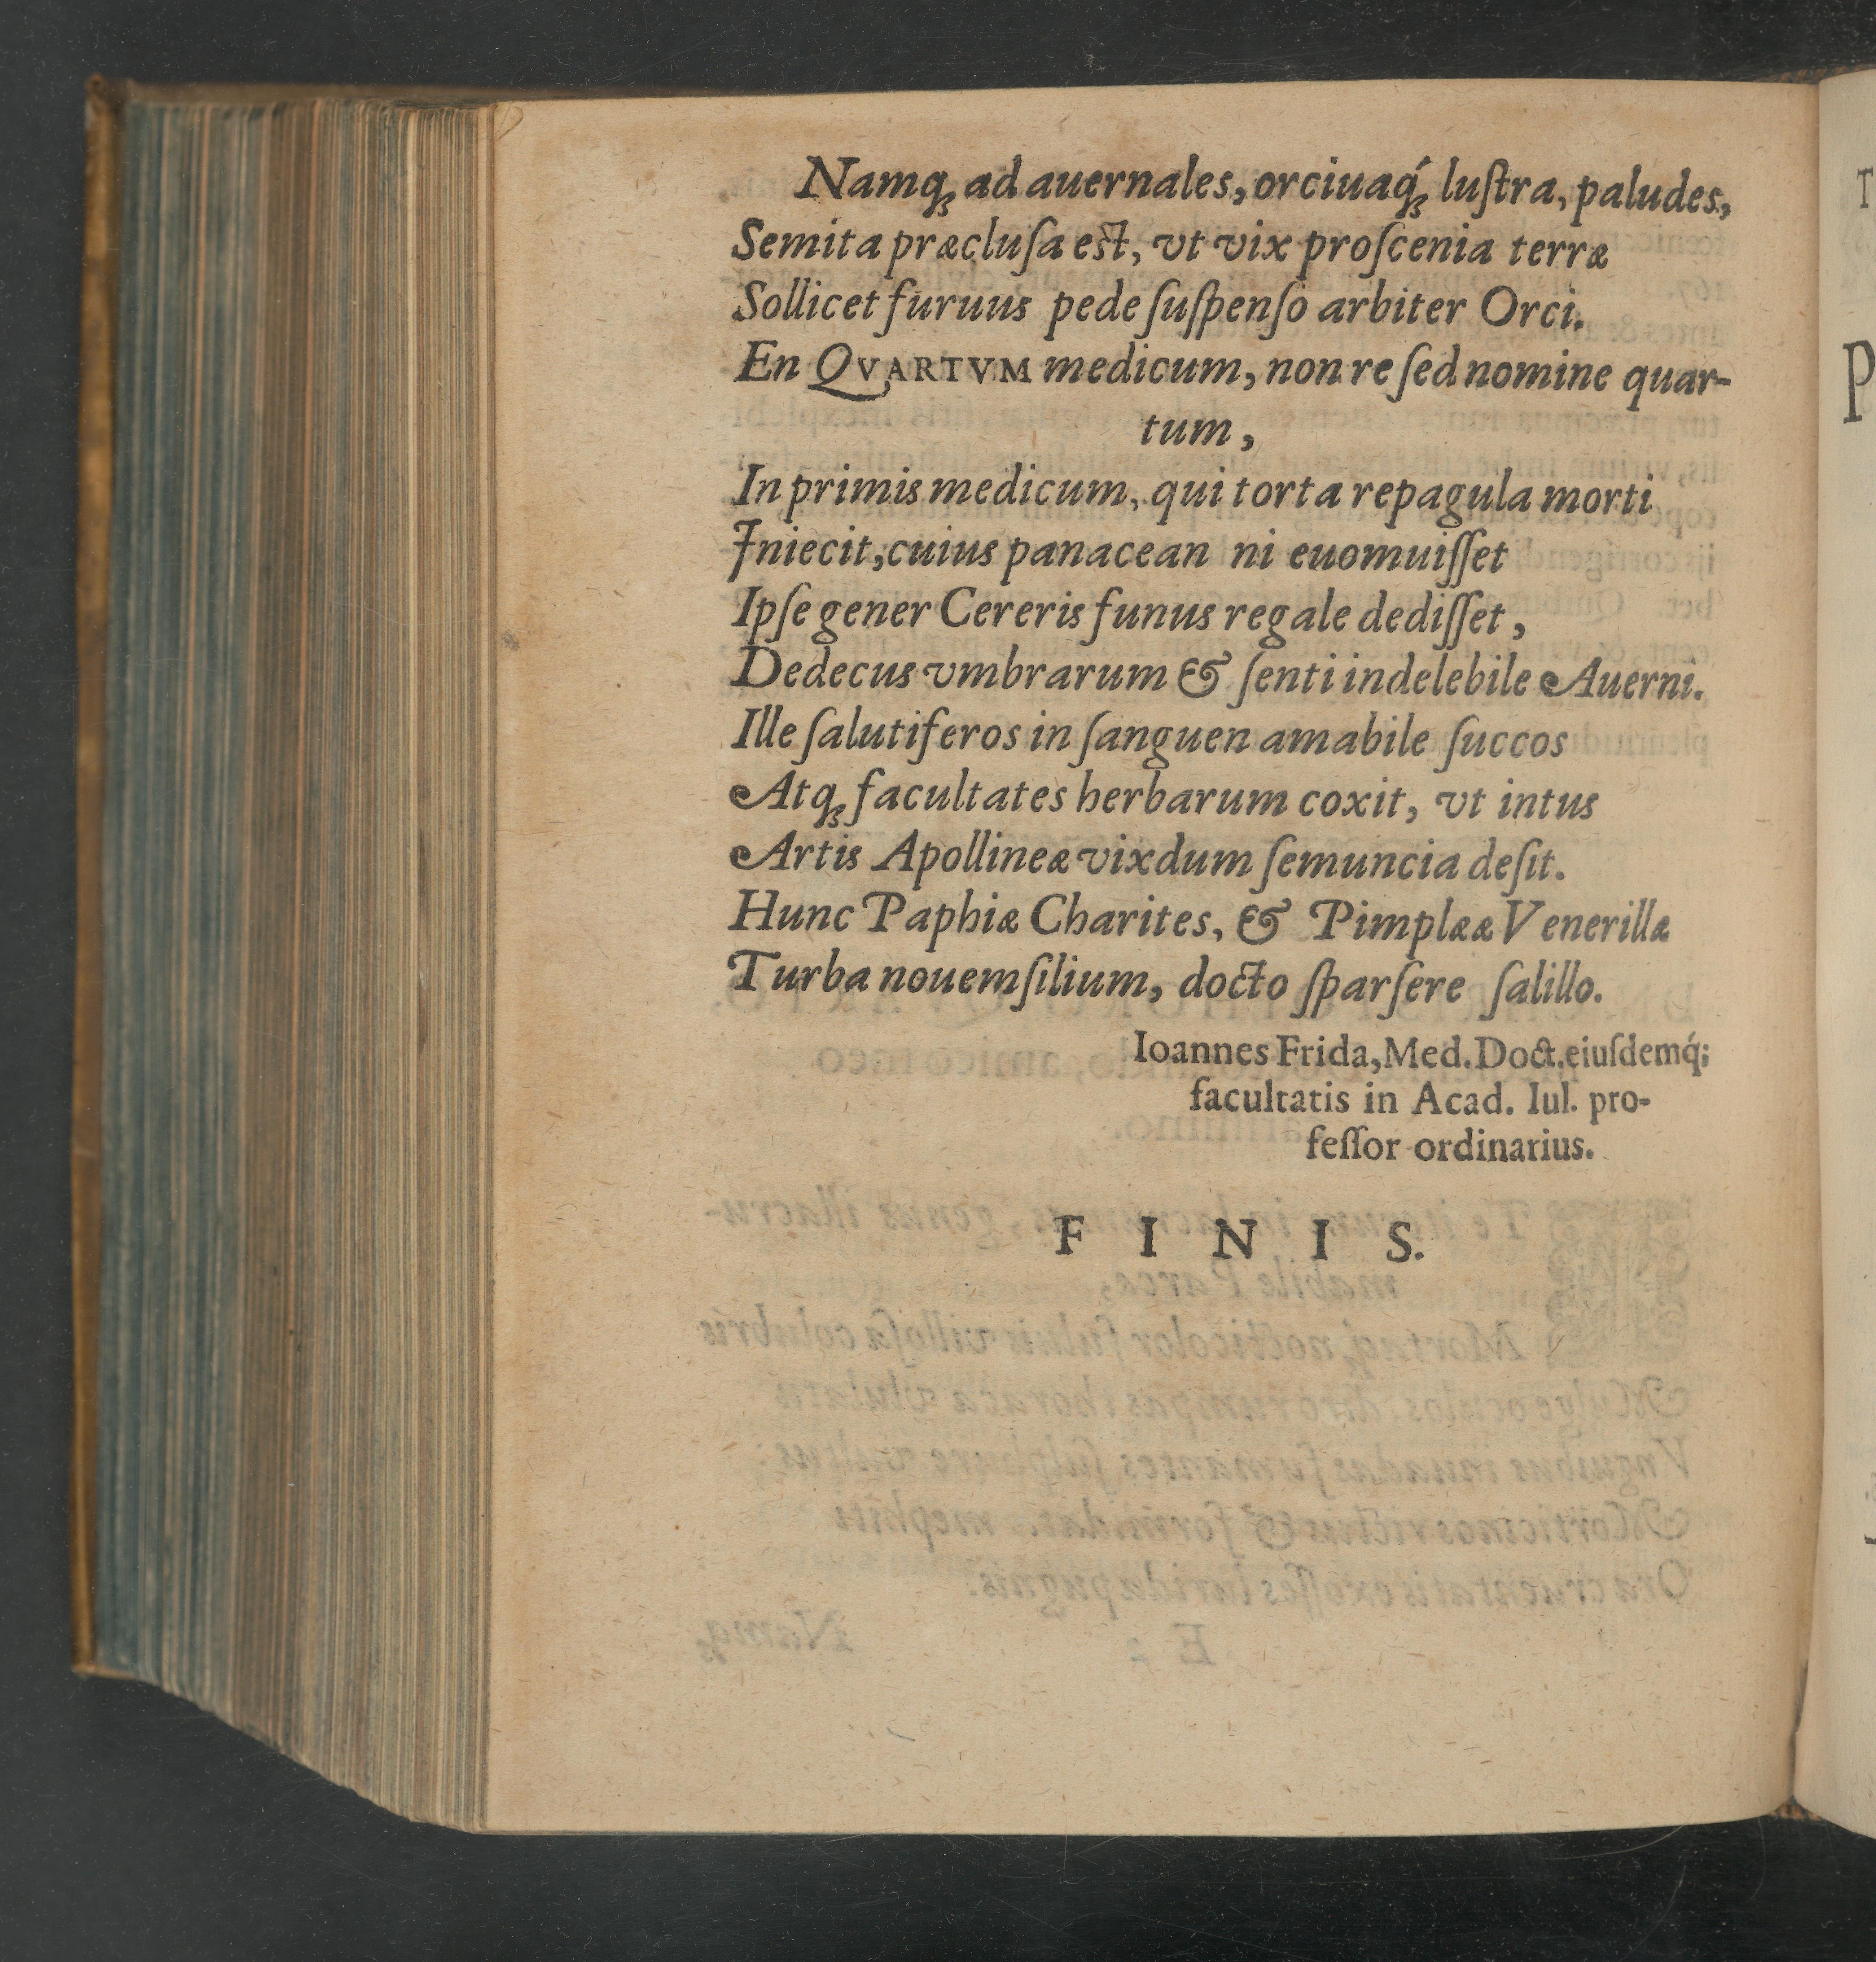 Namq́ꝫ ad auernales, orciuaq́ꝫ luſtra, paludes,
Semita præcluſa est, vt vix proſcenia terræ
Sollicet furuus pede ſuſpenſo arbiter Orci.
En QVARTVM medicum, non re ſed nomine quar-
tum,
In primis medicum, qui torta repagula morti
Iniecit, cuius panacean ni euomuiſſet
Ipſe gener Cereris funus regale dediſſet,
Dedecus vmbrarum & ſenti indelebile Auerni.
Ille ſalutiferos in ſanguen amabile ſuccos
Atqꝫ facultates herbarum coxit, vt intus
Artis Apollineæ vixdum ſemuncia deſit.
Hunc Paphiæ Charites, & Pimplææ Venerillæ
Turba nouemſilium, docto ſparſere ſalillo.
Ioannes Frida, Med. Doct. eiuſdemq́;
facultatis in Acad. Iul. pro-
feſſor ordinarius.
F I N I S.